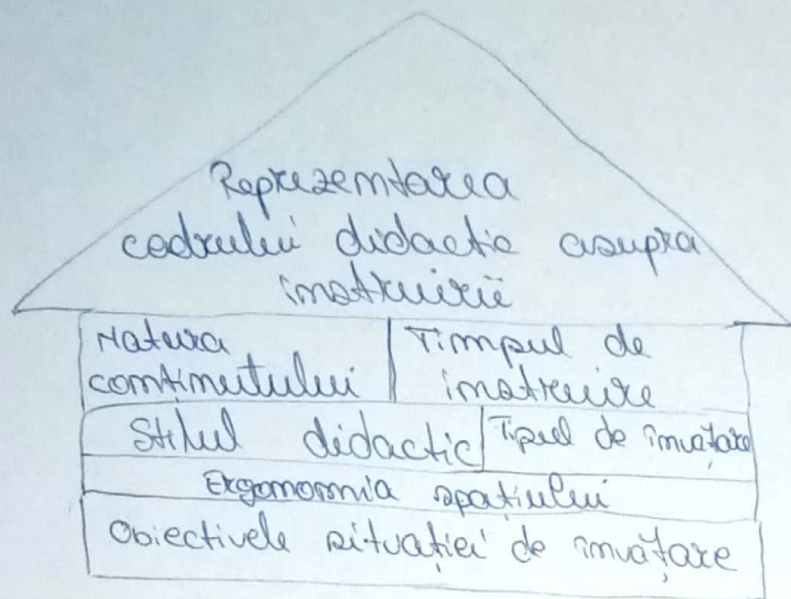 Reprezentarea
cadrului didactic asupra
instruirii
Natura
conținutului
Timpul de
instruire
Stilul didactic
Tipul de învățare
Ergonomia spațiului
Obiectivele situației de învățare